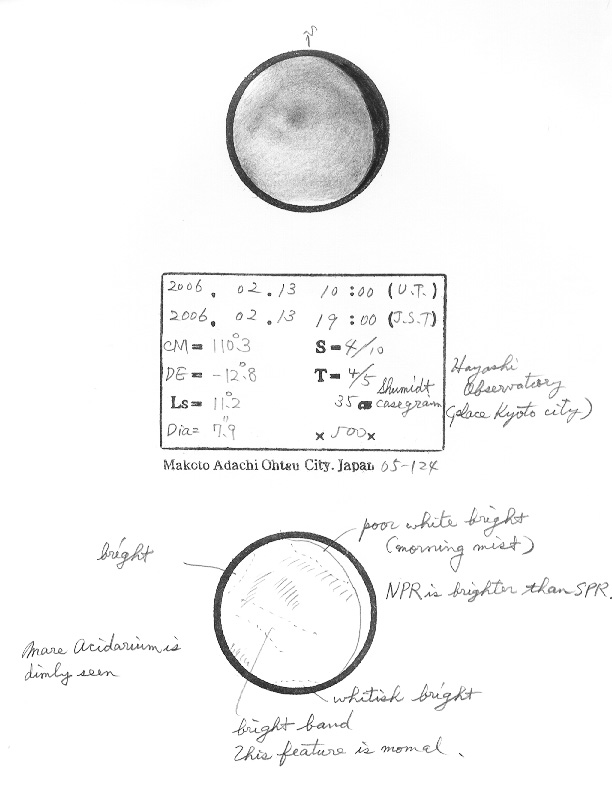 N
2006. 02.13 10:00 (U.T.)
2006. 02.13 19:00 (J.S.T)
CM= 110.°3 S=4/10
DE= -12.°8 T=4/5
Ls= 11.°2 35cm Shumidt casegrain
Dia= 7.″9 x 500x
Hayashi
Observatory
(place Kyoto city)
Makoto Adachi Ohtsu City. Japan 05-124
poor white bright
(morning mist)
bright
NPR is brighter than SPR.
mare Acidarium is
dimly seen
whitish bright
bright band
This feature is momal.